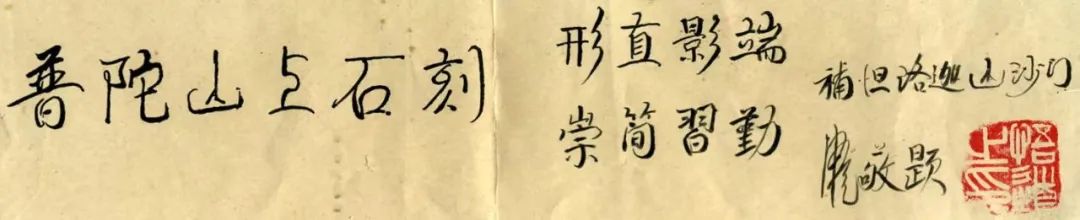 普陀山上石刻
形直影端
崇简習勤
補怛洛迦山沙门
敬题